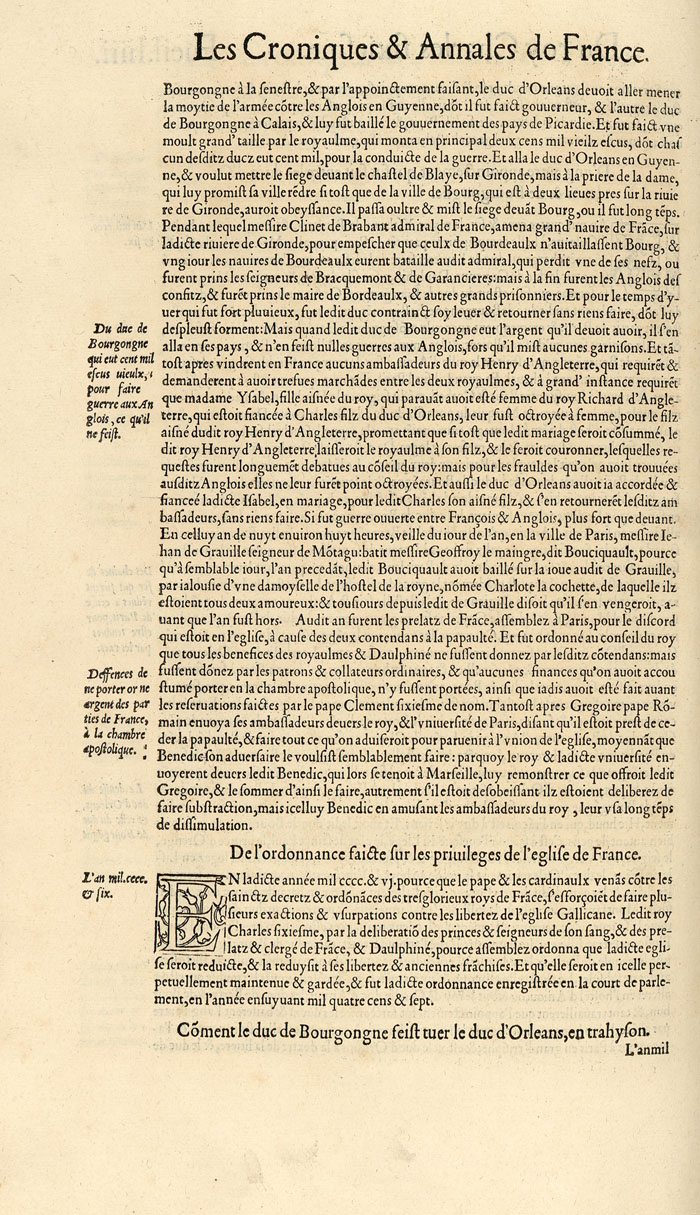 Les Croniques & Annales de France.
Bourgongne à la senestre,&par l'appoinctement faisant,le duc d'Orleans deuoit aller mener
la moytie de l'armée cõtre les Anglois en Guyenne,dõt il fut faict gouuerneur, & l'autre le duc
de Bourgongne à Calais,& luy fut baillé le gouuernement des pays de Picardie.Et fut faict vne
moult grand' taille par le royaulme,qui monta en principal deux cens mil vieilz escus, dõt chaſ
cun deſditz ducz eut cent mil,pour la conduicte de la guerre.Et alla le duc d'Orleans en Guyen-
ne,& voulut mettre le ſiege deuant le chaſtel de Blaye,ſur Gironde,mais à la priere de la dame,
qui luy promiſt ſa ville rẽdre ſi toſt que de la ville de Bourg,qui eſt à deux lieues pres ſur la riuie
re de Gironde,auroit obeyſſance.Il paſſa oultre & miſt le ſiege deuãt Bourg,ou il fut long tẽps.
Pendant lequel meſſire Clinet de Brabant admiral de France,amena grand' nauire de Frãce,ſur
ladicte riuiere de Gironde,pour empeſcher que ceulx de Bourdeaulx n'auitaillaſſent Bourg, &
vng iour les nauires de Bourdeaulx eurent bataille audit admiral,qui perdit vne de ſes nefz, ou
furent prins les ſeigneurs de Bracquemont & de Garancieres:mais à la fin furent les Anglois deſ
confitz,& furẽt prins le maire de Bordeaulx, & autres grands priſonniers.Et pour le temps d'y-
uer qui fut fort pluuieux, fut ledit duc contrainct ſoy leuer & retourner ſans riens faire, dõt luy
deſpleuſt forment:Mais quand ledit duc de Bourgongne eut l'argent qu'il deuoit auoir, il ſ'en
alla en ſes pays , & n'en feiſt nulles guerres aux Anglois,fors qu'il miſt aucunes garniſons.Et tã-
toſt apres vindrent en France aucuns ambaſſadeurs du roy Henry d'Angleterre,qui requirẽt &
demanderent à auoir treſues marchãdes entre les deux royaulmes, & à grand' inſtance requirẽt
que madame Yſabel,fille aiſnée du roy, qui parauãt auoit eſté femme du roy Richard d'Angle-
terre,qui eſtoit fiancée à Charles filz du duc d'Orleans, leur fuſt octroyée à femme,pour le filz
aiſné dudit roy Henry d'Angleterre,promettant que ſi toſt que ledit mariage ſeroit cõſummé, le
dit roy Henry d'Angleterre laiſſeroit le royaulme à ſon filz,& le feroit couronner,leſquelles re-
queſtes furent longuemẽt debatues au cõſeil du roy:mais pour les frauldes qu'on auoit trouuées
auſditz Anglois elles ne leur furẽt point octroyées.Et auſſi le duc d'Orleans auoit ia accordée &
fiancée ladicte Iſabel,en mariage,pour ledit Charles ſon aiſné filz,& ſ'en retournerẽt leſditz am
baſſadeurs,ſans riens faire.Si fut guerre ouuerte entre François & Anglois, plus fort que deuant.
En celluy an de nuyt enuiron huyt heures, veille du iour de l'an,en la ville de Paris, meſſire Ie-
han de Grauille ſeigneur de Mõtagu:batit meſſire Geoffroy le maingre,dit Bouciquault,pource
qu'à ſemblable iour,l'an precedãt,ledit Bouciquault auoit baillé ſur la ioue audit de Grauille,
par ialouſie d'vne damoyſelle de l'hoſtel de la royne,nõmée Charlote la cochette,de laquelle ilz
eſtoient tous deux amoureux:& touſiours depuis ledit de Grauille diſoit qu'il ſ'en vengeroit, a-
uant que l'an fuſt hors. Audit an furent les prelatz de Frãce,aſſemblez à Paris,pour le diſcord
qui eſtoit en l'egliſe,à cauſe des deux contendans à la papaulté. Et fut ordonné au conſeil du roy
que tous les benefices des royaulmes & Daulphiné ne fuſſent donnez par leſditz cõtendans:mais
fuſſent dõnez par les patrons & collateurs ordinaires, & qu'aucunes finances qu'on auoit accou
ſtumé porter en la chambre apoſtolique, n'y fuſſent portées, ainſi que iadis auoit eſté fait auant
les reſeruations faictes par le pape Clement ſixieſme de nom.Tantoſt apres Gregoire pape Rõ-
main enuoya ſes ambaſſadeurs deuers le roy,&l'vniuerſité de Paris,diſant qu'il eſtoit preſt de ce-
der la papaulté,&faire tout ce qu'on aduiſeroit pour paruenir à l'vnion de l'egliſe,moyennãt que
Benedic ſon aduerſaire le voulſiſt ſemblablement faire: parquoy le roy & ladicte vniuerſité en-
uoyerent deuers ledit Benedic,qui lors ſe tenoit à Marſeille,luy remonſtrer ce que offroit ledit
Gregoire,& le ſommer d'ainſi le faire,autrement ſ'il eſtoit deſobeiſſant ilz eſtoient deliberez de
faire ſubſtraction,mais icelluy Benedic en amuſant les ambaſſadeurs du roy , leur vſa long tẽps
de diſſimulation.
Du duc de
Bourgongne
qui eut cent mil
eſcus uieulx,
pour faire
guerre aux An
glois, ce qu'il
ne feiſt.
Deffences de
ne porter or ne
argent des par
ties de France,
à la chambre
apoſtolique.
De l'ordonnance faicte ſur les priuileges de l'egliſe de France.
L'an mil.cccc.
& ſix.
EN ladicte année mil cccc.& vj.pource que le pape & les cardinaulx venãs cõtre les
ſainctz decretz & ordõnãces des treſglorieux roys de Frãce,ſ'efforçoiẽt de faire plu-
ſieurs exactions & vſurpations contre les libertez de l'egliſe Gallicane. Ledit roy
Charles ſixieſme, par la deliberatiõ des princes & ſeigneurs de ſon ſang,& des pre-
latz & clergé de Frãce, & Daulphiné,pource aſſemblez ordonna que ladicte egli-
ſe ſeroit reduicte,& la reduyſit à ſes libertez & anciennes frãchiſes.Et qu'elle ſeroit en icelle per-
petuellement maintenue & gardée,& fut ladicte ordonnance enregiſtrée en la court de parle-
ment,en l'année enſuyuant mil quatre cens & ſept.
Cõment le duc de Bourgongne feiſt tuer le duc d'Orleans,en trahyſon.
L'anmil